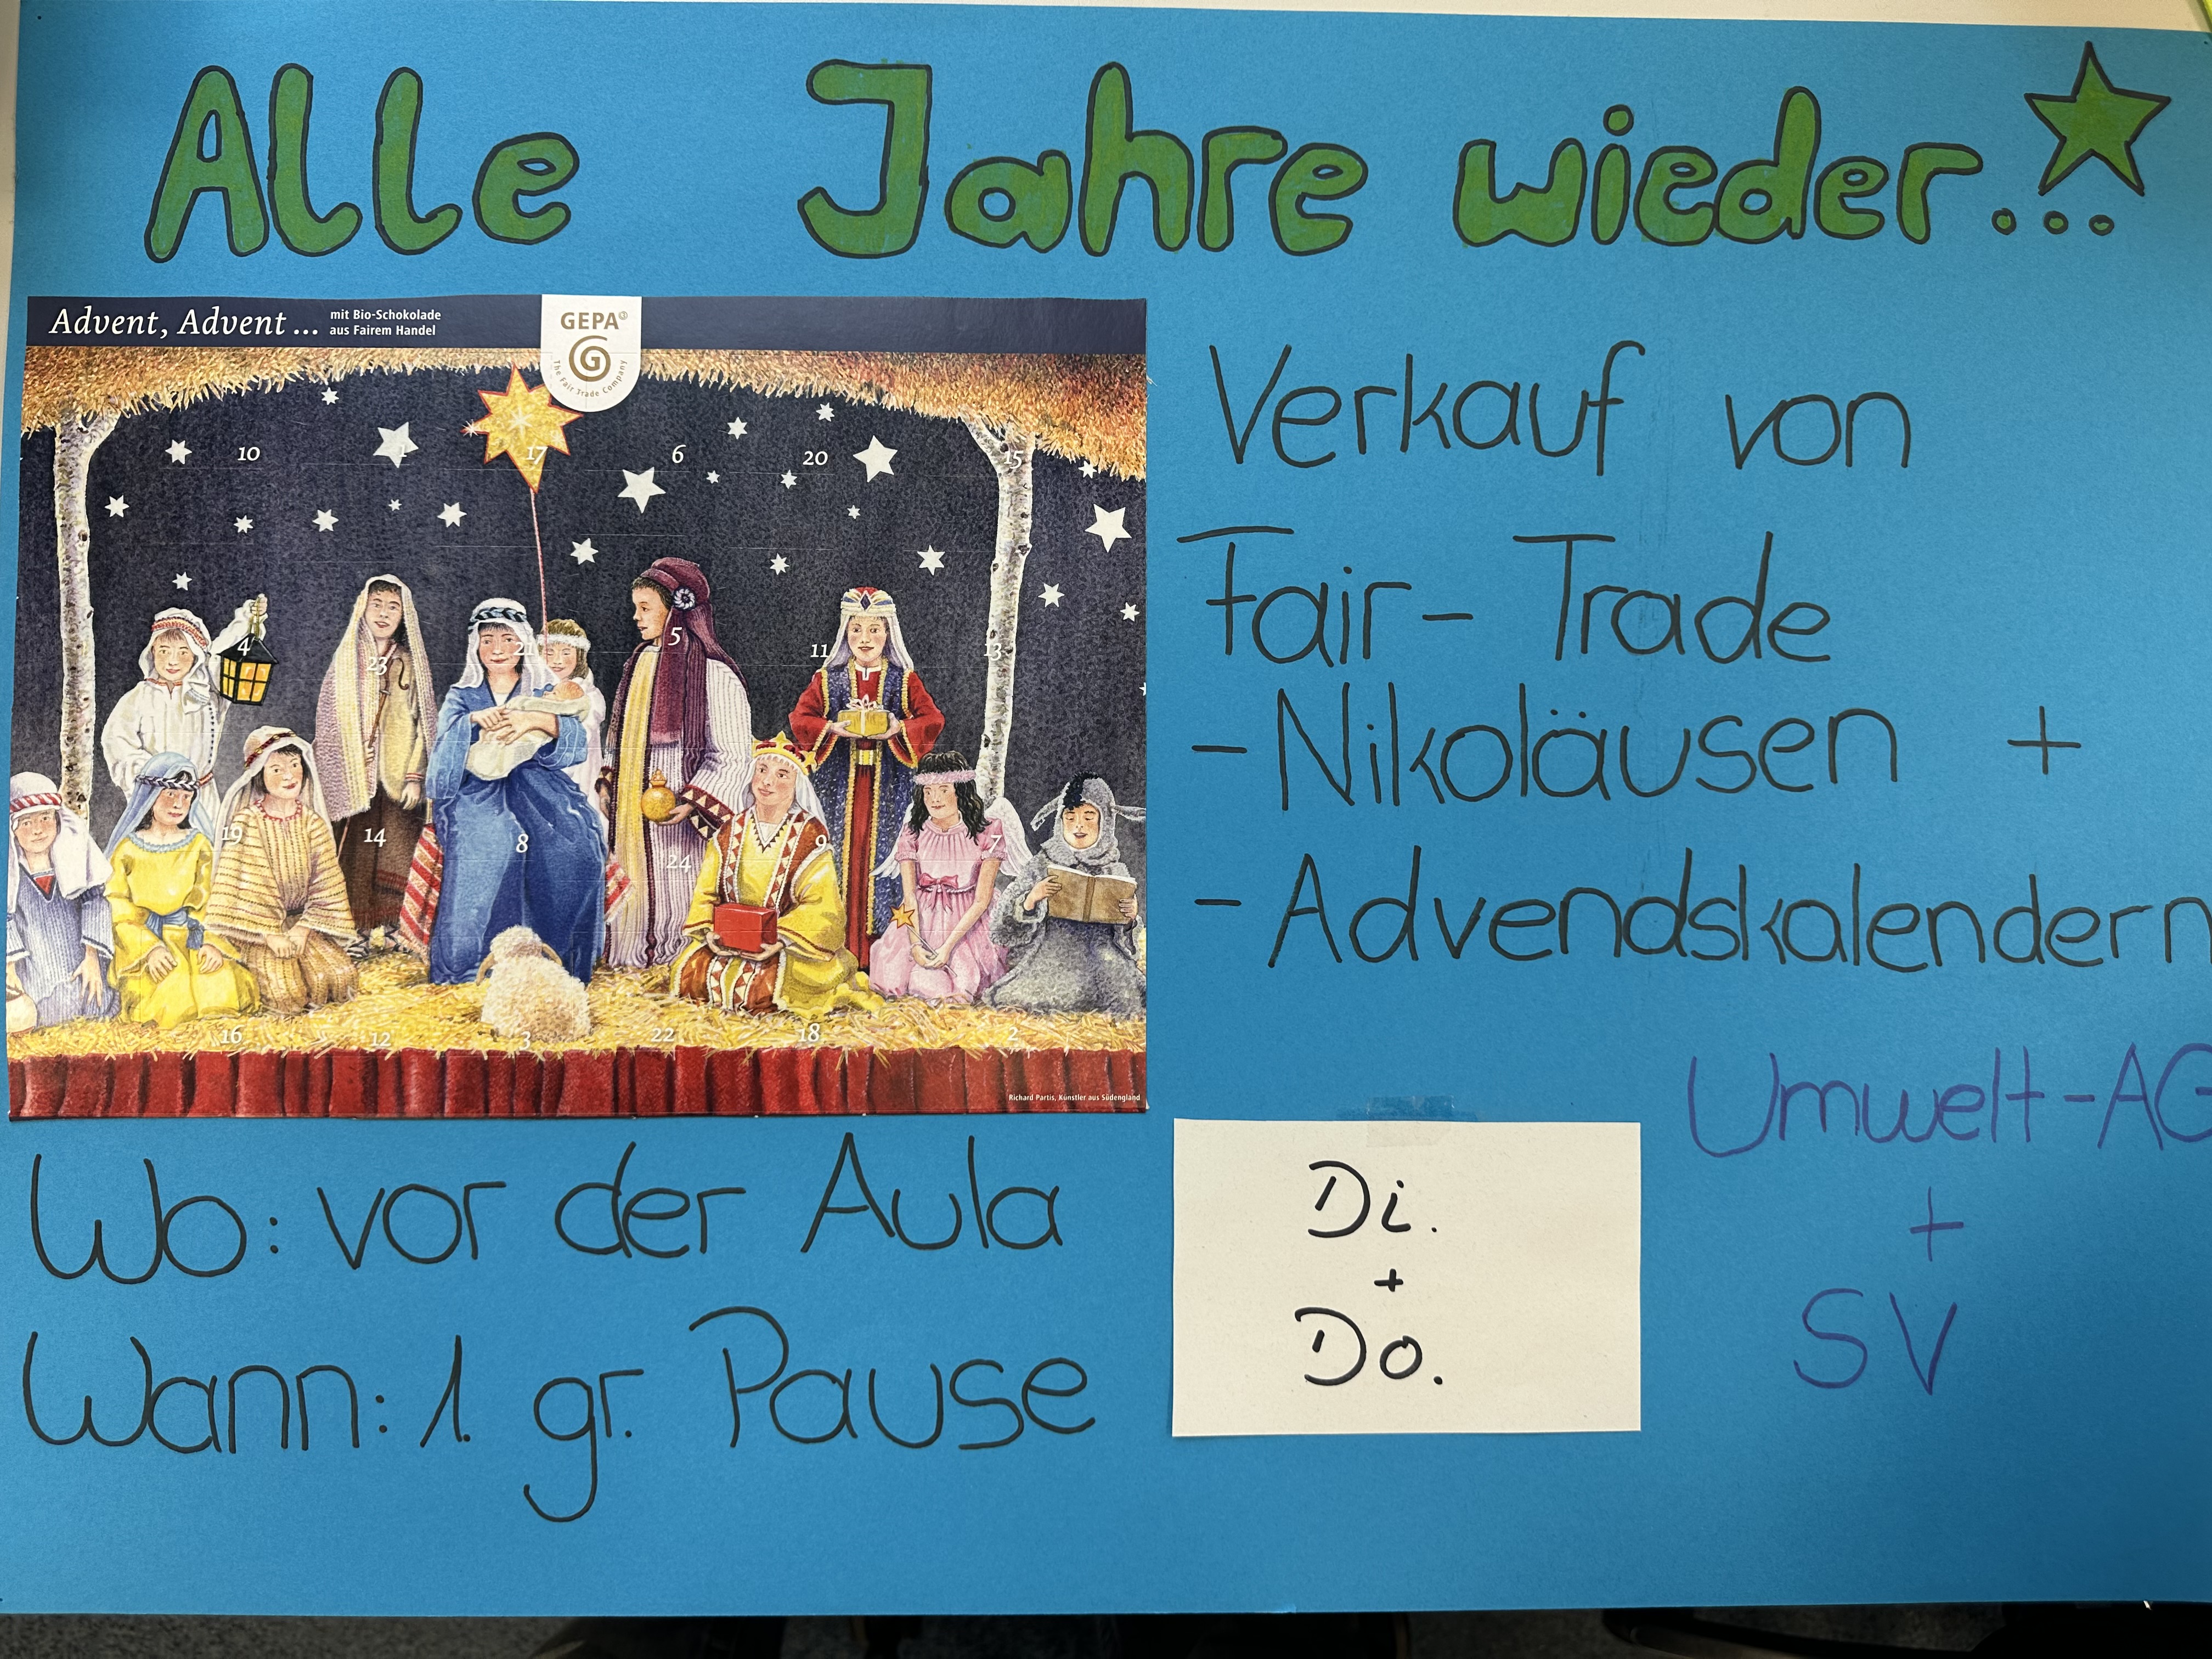 Alle Jahre wieder...
Advent, Advent ...
mit Bio-Schokolade
aus Fairem Handel
GEPA
G
The Fair Trade Company
10
1
17
6
20
15
4
23
21
5
11
13
19
14
8
24
9
7
16
12
3
22
18
2
Richard Partis, Künstler aus Südengland
Verkauf von
Fair-Trade
-Nikoläusen +
-Advendskalendern
Umwelt-AG
+
SV
Wo: vor der Aula
Wann: 1. gr. Pause
Di.
+
Do.